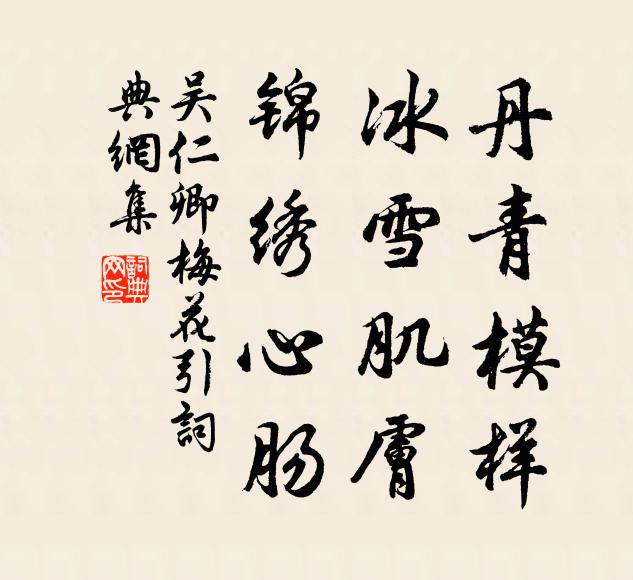 丹青模样
冰雪肌膚
锦绣心肠
吴仁卿梅花引詞
典網集
詞典网印